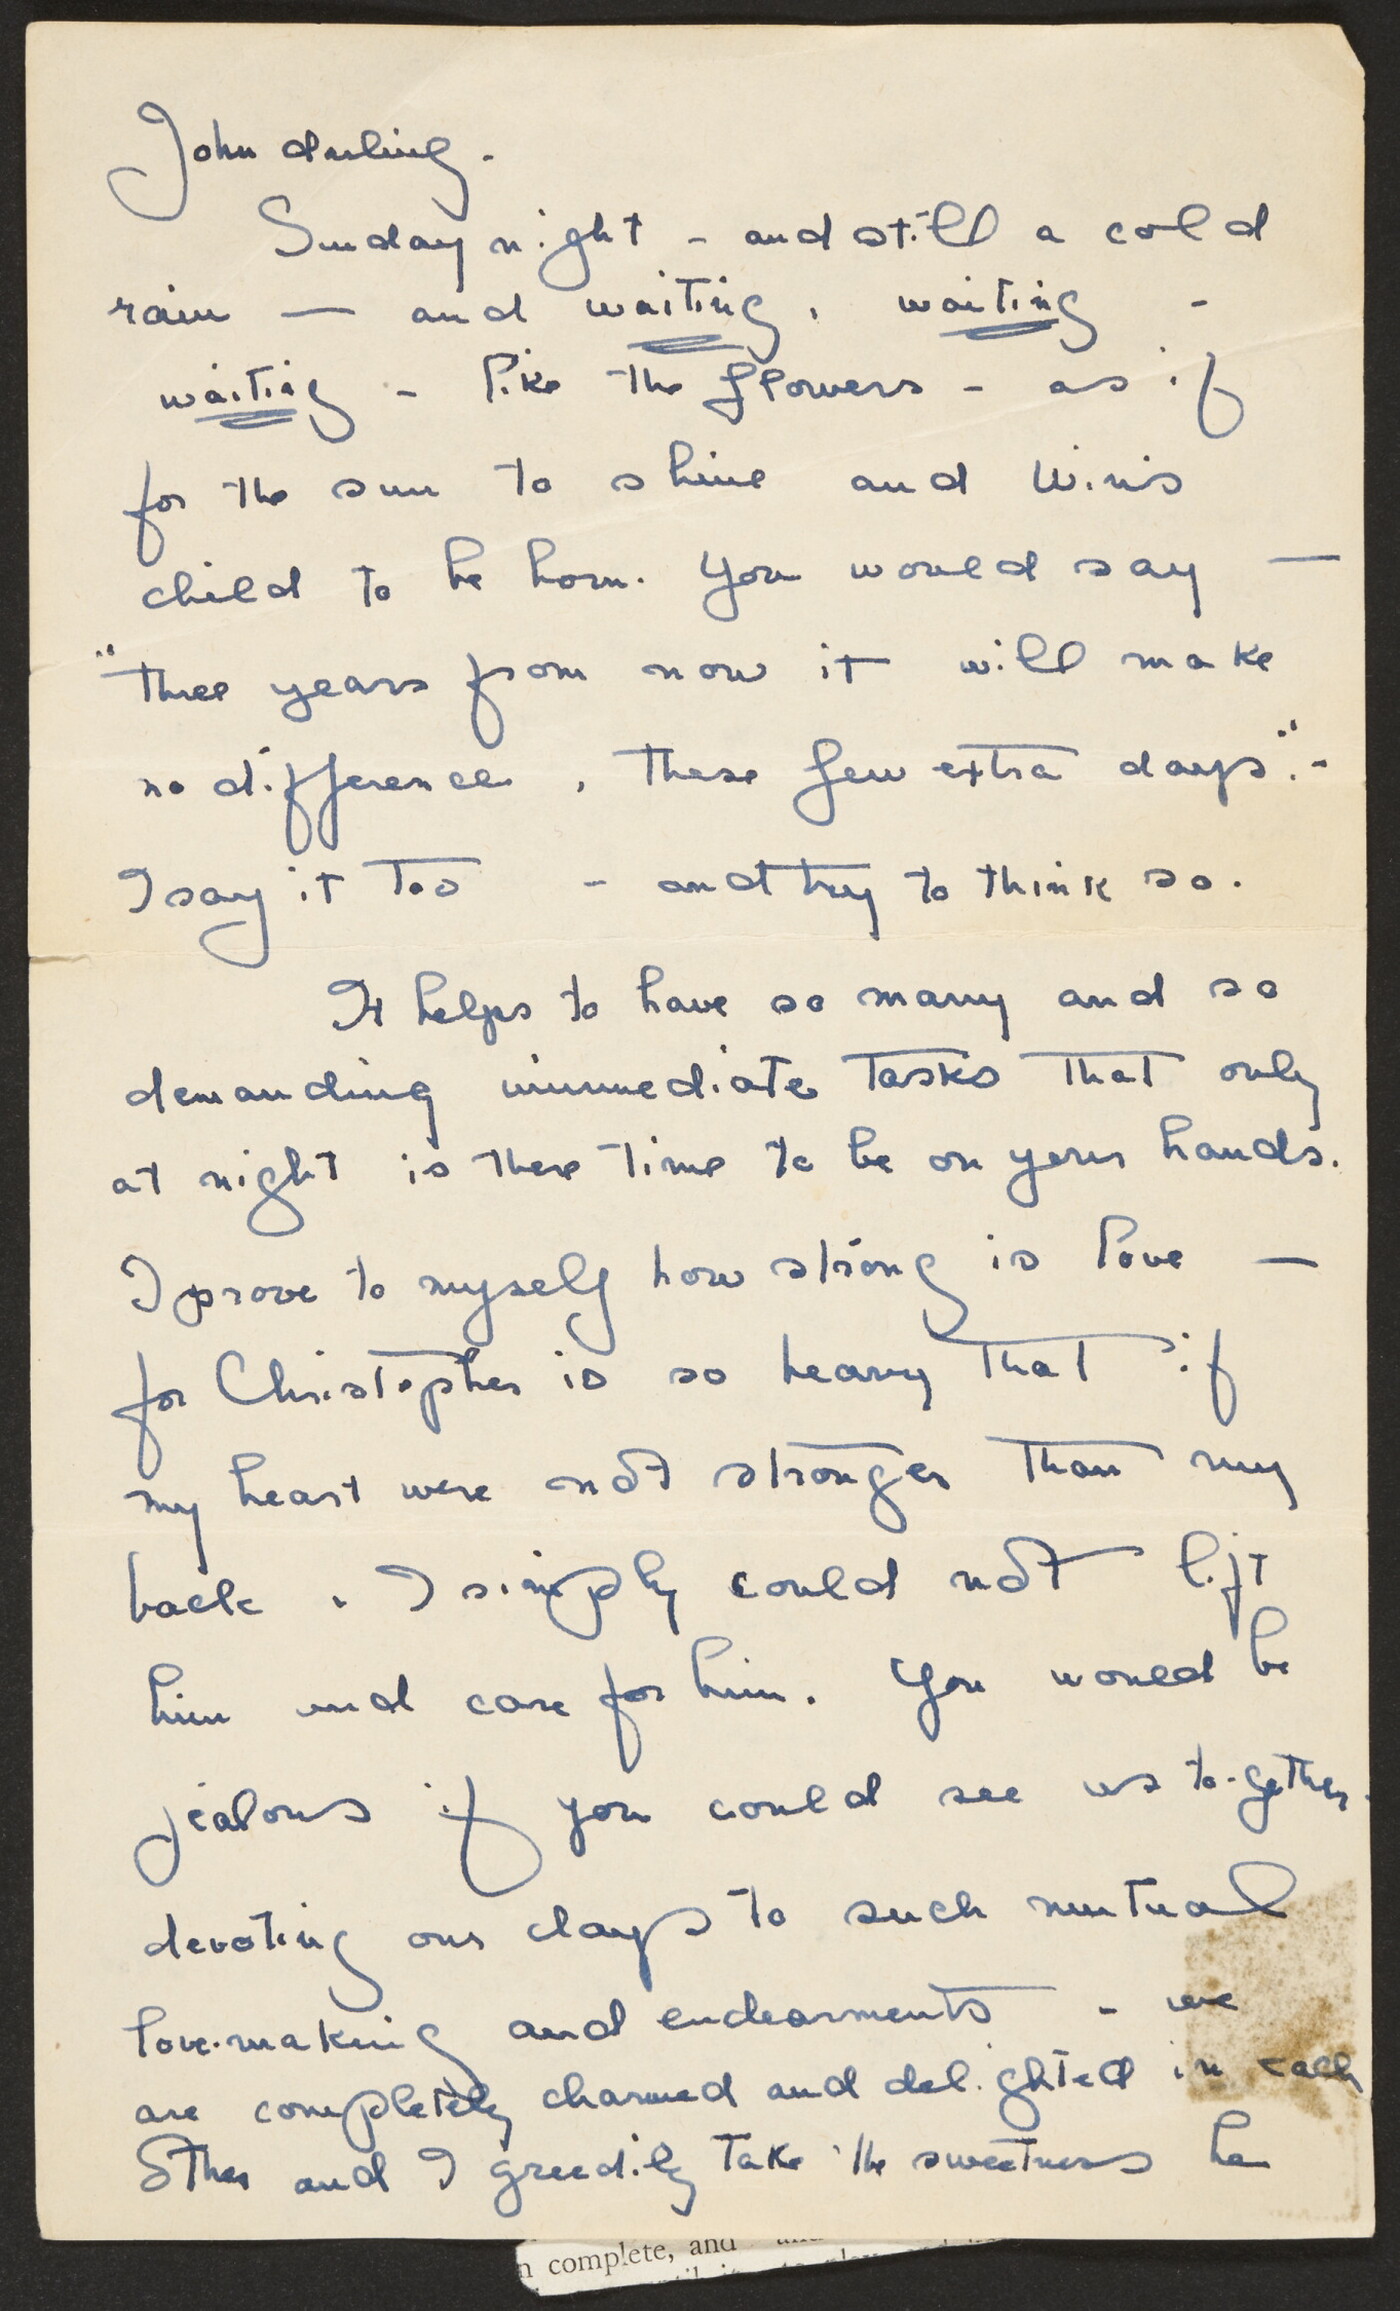 John darling -
Sunday night - and still a cold
rain — and waiting, waiting -
waiting - like the flowers - as if
for the sun to shine and Win's
child to be born. You would say —
"three years from now it will make
no difference, these few extra days". -
I say it too - and try to think so.
It helps to have so many and so
demanding immediate tasks that only
at night is there time to be on your hands.
I prove to myself how strong is love —
for Christopher is so heavy that if
my heart were not stronger than my
back, I simply could not lift
him and care for him. You would be
jealous if you could see us to-gether.
devoting our days to such mutual
love-making and endearments - we
are completely charmed and delighted in each
other and I greedily take the sweetness he
n complete, and